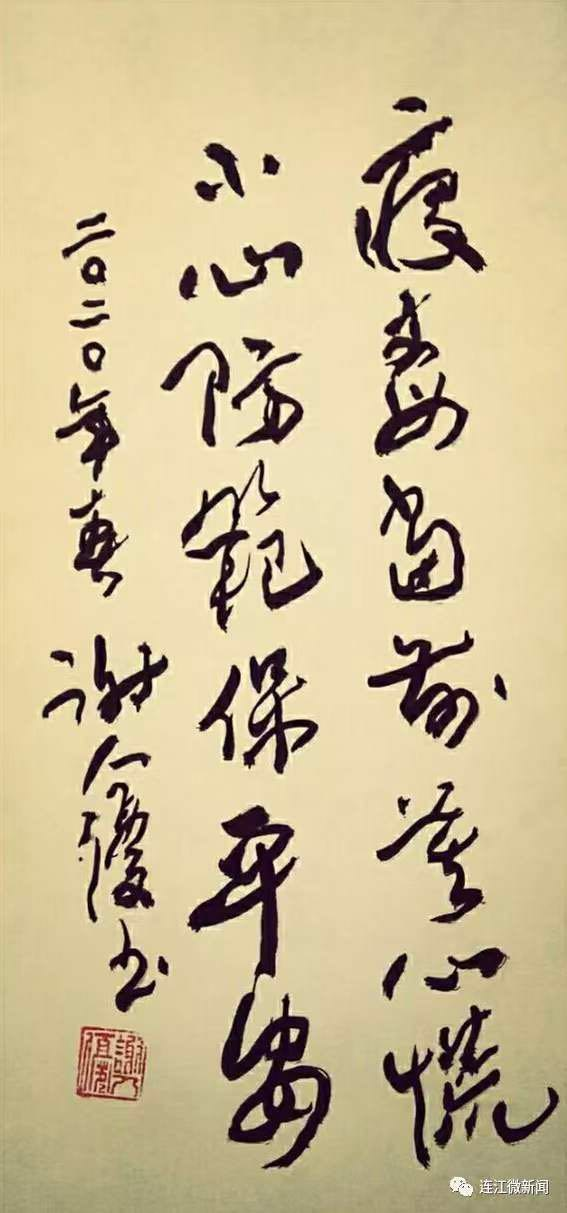 疫毒当前莫心慌
小心防范保平安
二〇二〇年春 谢人優书
连江微新闻